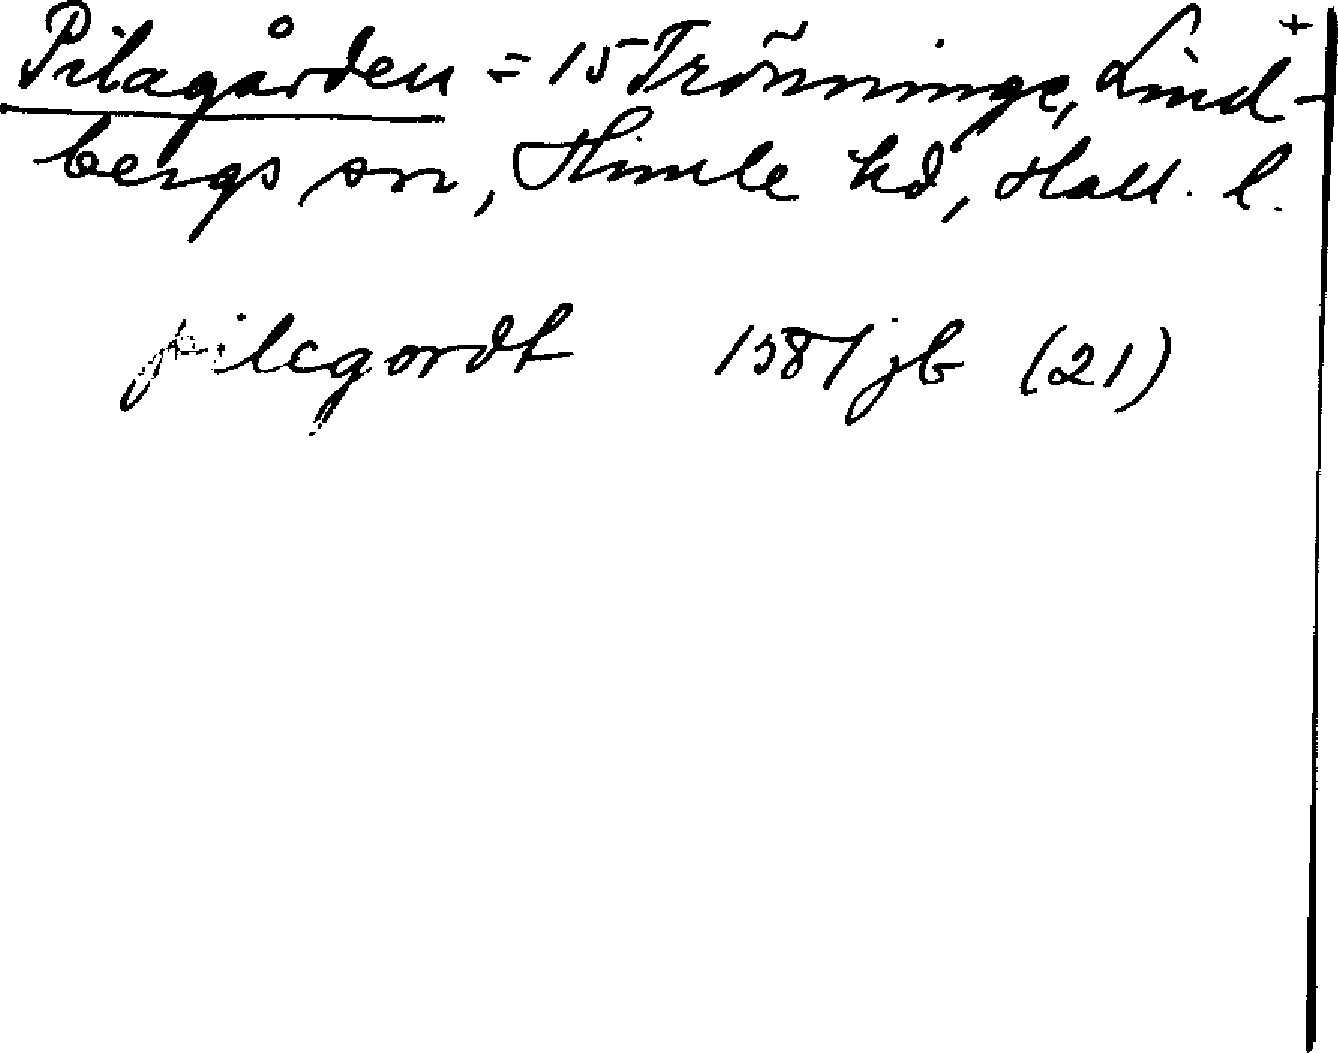 Pilagården = 15 Trönninge, Lind- +
bergs sn, Himle hd, Hall. l.
pilegordt 1581 jb (21)